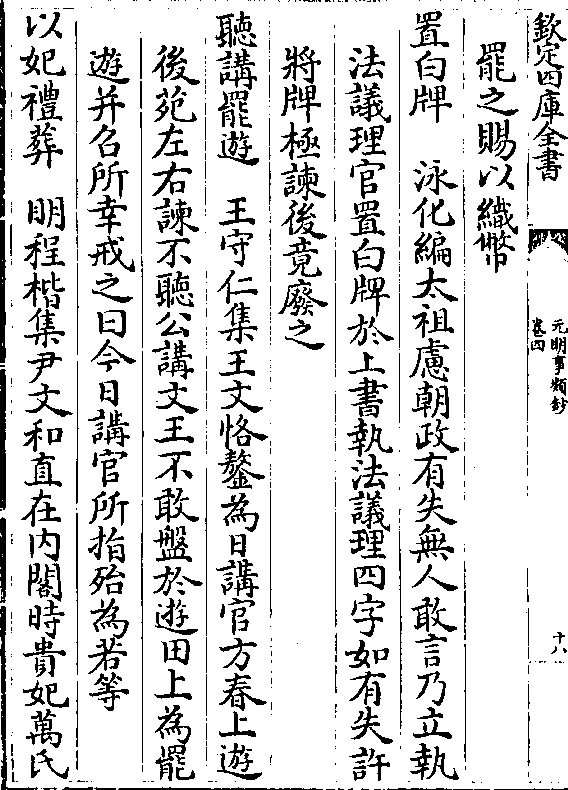 欽定四庫全書
元明事類鈔
卷四
十八
罷之賜以織幣
置白牌　泳化編太祖慮朝政有失無人敢言乃立執
法議理官置白牌於上書執法議理四字如有失許
將牌極諫後竟廢之
聽講罷遊　王守仁集王文恪鏊為日講官方春上遊
後苑左右諫不聽公講文王不敢盤於遊田上為罷
遊并召所幸戒之曰今日講官所指殆為若等
以妃禮葬　明程楷集尹文和直在内閣時貴妃萬氏